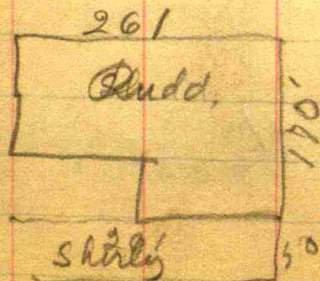 261
Rudd,
140.
Shirly
50